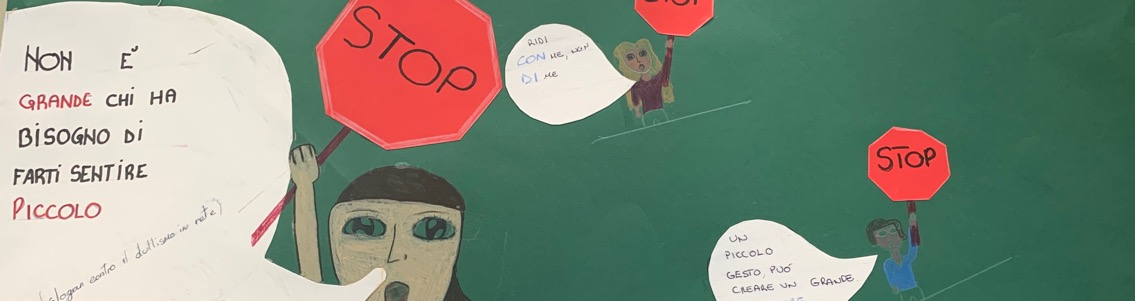 NON È
GRANDE CHI HA
BISOGNO DI
FARTI SENTIRE
PICCOLO
slogan contro il bullismo in rete)
STOP
RIDI
CON ME, NON
DI ME
STOP
STOP
UN
PICCOLO
GESTO, PUÓ
CREARE UN GRANDE